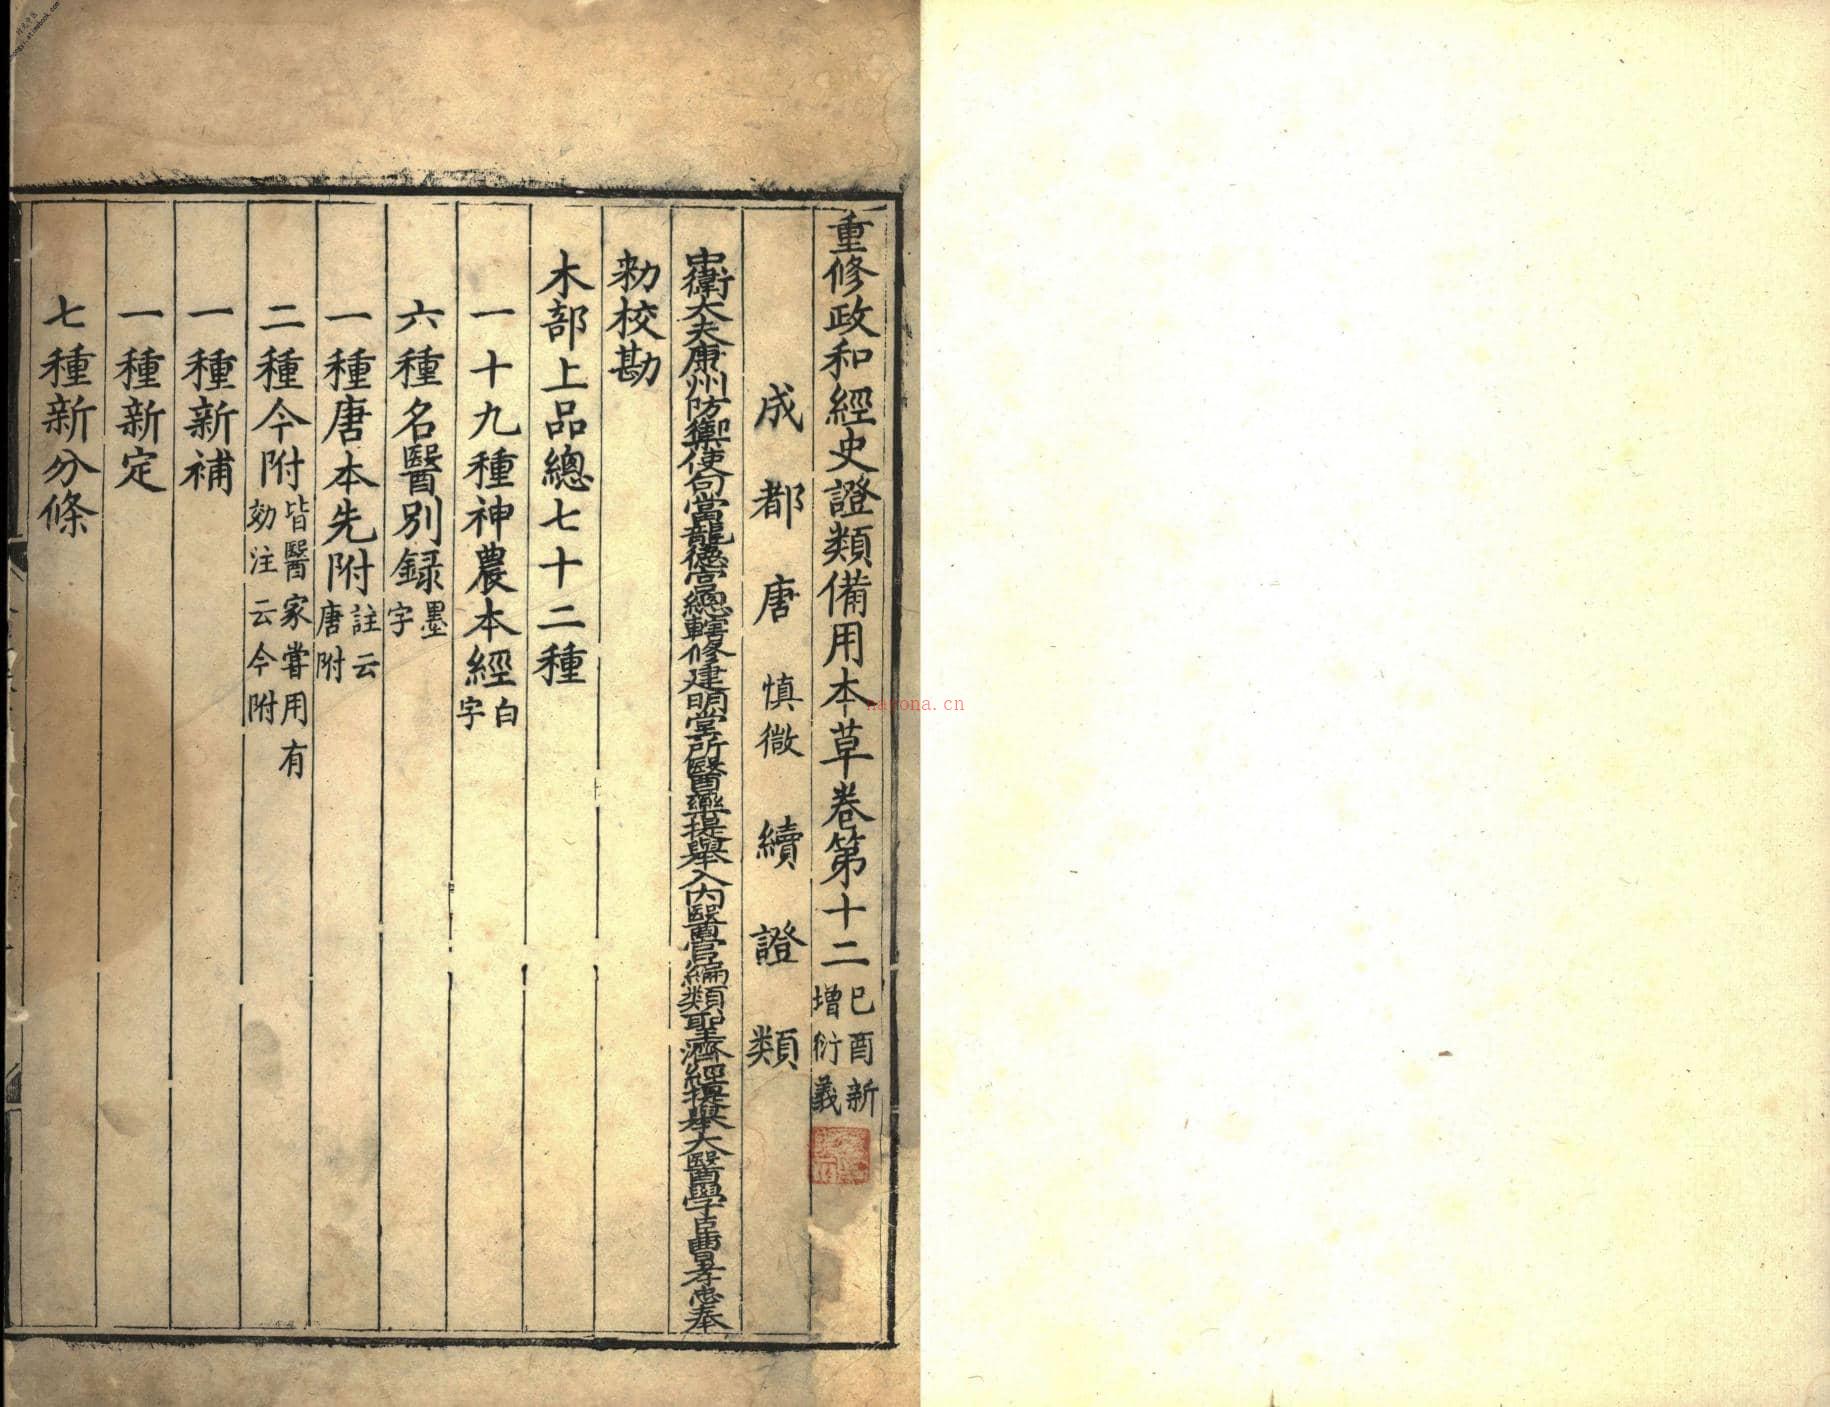 重修政和經史證類備用本草卷第十二
己酉新
增衍義
成都唐慎微續證類
中衛大夫康州防禦使句當龍德宮總轄修建明堂所醫藥提舉入內醫官編類聖濟經提舉太醫學臣曹孝忠奉
勑校勘
木部上品總七十二種
一十九種神農本經
白
字
六種名醫別録
墨
字
一種唐本先附
註云
唐附
二種今附
皆醫家嘗用有
効注云今附
一種新補
一種新定
七種新分條
nayona.cn